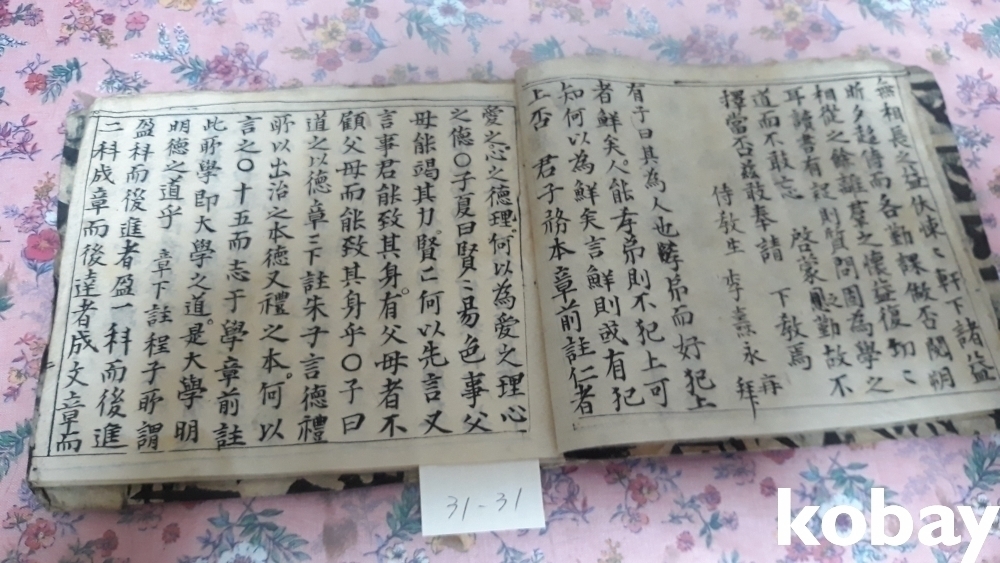 無相長之益伏悚〻軒下諸益
時多起倦而各勤課做否閱朔
相從之餘離羣之懷益復切〻
耳諸書有起則質問固為學之
道而不敢忘 啓蒙 勤故不
擇當否玆敢奉請 下教焉
侍教生 李熹永 拜
有子曰其為人也孝弟而好犯上
者鮮矣人能孝弟則不犯上可
知何以為鮮矣言鮮則或有犯
上否 君子務本章前註仁者
愛之理心之德理何以為愛之理心
之德〇子夏曰賢〻易色事父
母能竭其力賢〻何以先言又
言事君能致其身有父母者不
顧父母而能致其身乎〇子曰
道之以德章〻下註朱子言德禮
所以出治之本德又禮之本何以
言之〇十五而志于學章前註
此所學即大學之道是大學明
明德之道乎 章下註程子所謂
盈科而後進者盈一科而後進
二科成章而後達者成文章而
31-31
kobay